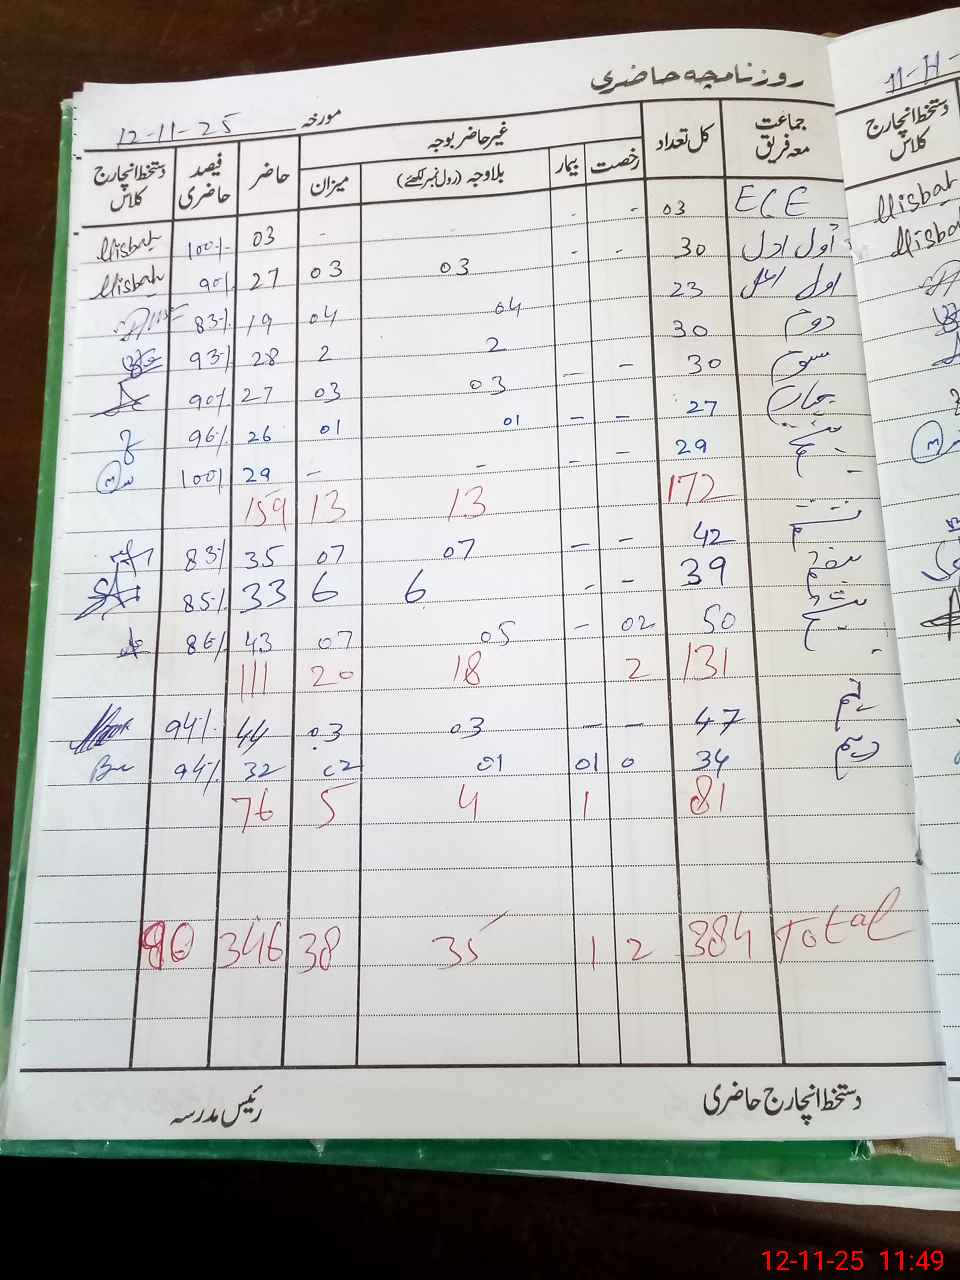 روزنامچہ حاضری
مورخہ 12-11-25
جماعت معہ فریق | کل تعداد | غیر حاضر بوجہ | حاضر | فیصد حاضری | دستخط انچارج کلاس
رخصت | بیمار | بلاوجہ (رول نمبر لکھئے) | میزان
ECE 03 - - - 03 100% Misbah
اول ادنیٰ 30 - - 03 03 27 90% Misbah
اول اعلیٰ 23 04 04 19 83%
دوم 30 2 2 28 93%
سوم 30 - - 03 03 27 90%
چہارم 27 - - 01 01 26 96%
پنجم 29 - - - - 29 100%
172 13 13 159
ششم 42 - - 07 07 35 83%
ہفتم 39 - - 6 6 33 85%
ہشتم 50 02 - 05 07 43 86%
131 2 18 20 111
نہم 47 - - 03 03 44 94%
دہم 34 0 01 01 02 32 94%
81 1 4 5 76
Total 384 2 1 35 38 346 90
دستخط انچارج حاضری
رئیس مدرسہ
دستخط انچارج کلاس
Misbah
12-11-25 11:49